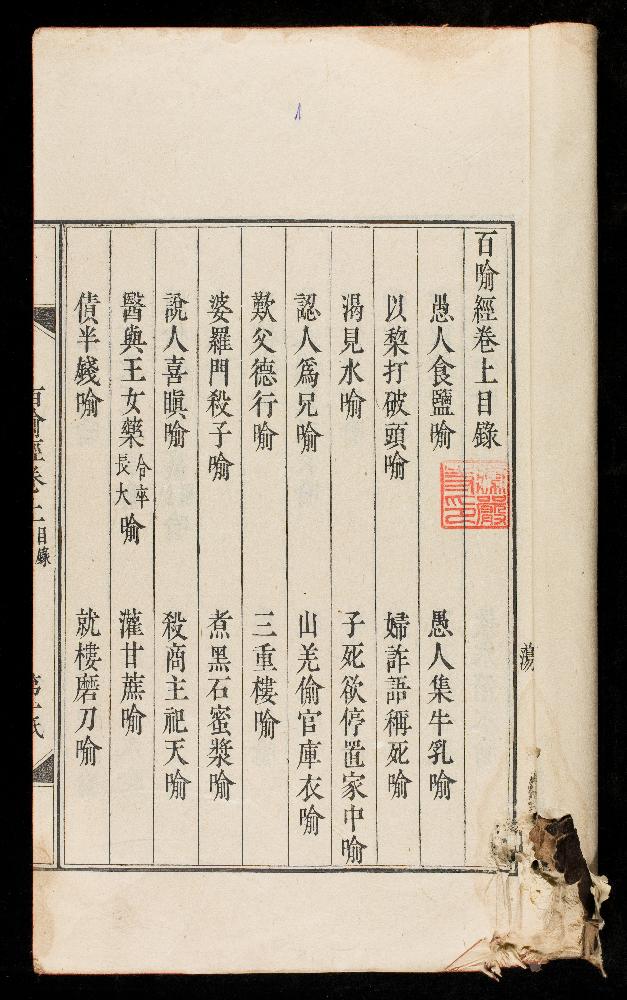 百喻經卷上目錄
愚人食鹽喻 愚人集牛乳喻
以棃打破頭喻 婦詐語稱死喻
渴見水喻 子死欲停置家中喻
認人為兄喻 山羌偷官庫衣喻
歎父德行喻 三重樓喻
婆羅門殺子喻 煮黑石蜜漿喻
說人喜瞋喻 殺商主祀天喻
醫與王女藥令卒長大喻 灌甘蔗喻
債半錢喻 就樓磨刀喻
百喻經卷上目錄